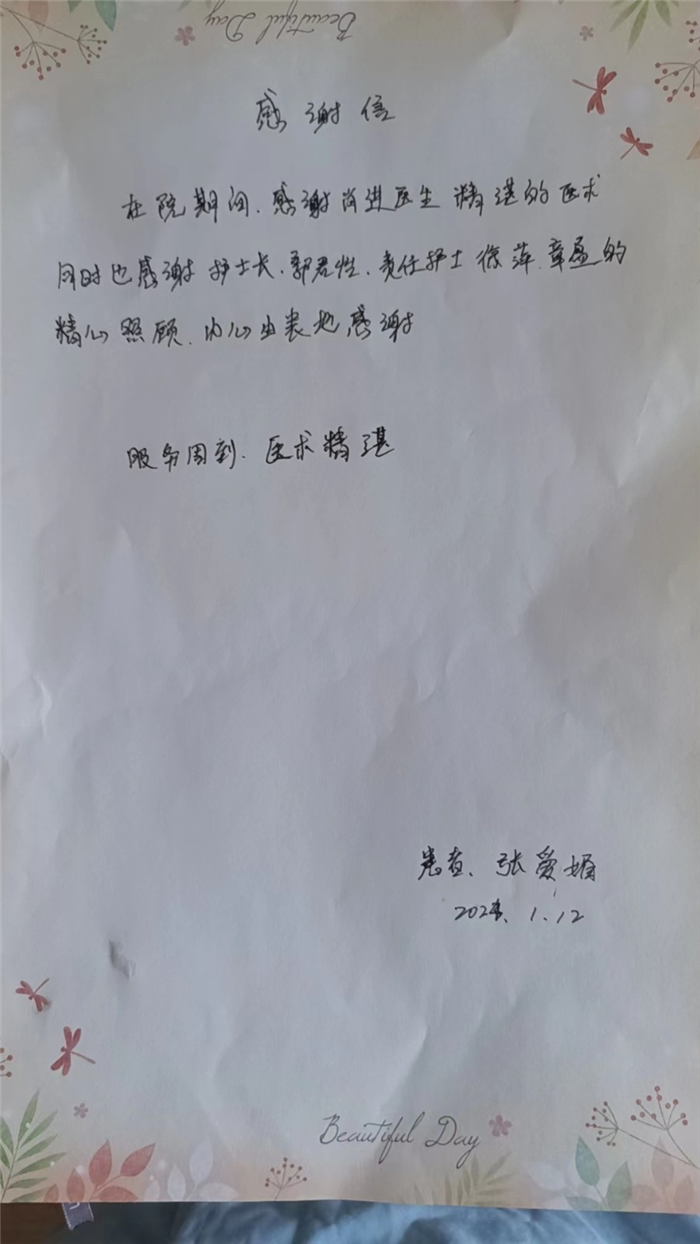 Beautiful Day
感谢信
在院期间、感谢肖进医生精湛的医术
同时也感谢护士长、郭君性、责任护士徐萍、章盈的
精心照顾、内心由衷地感谢
服务周到、医术精湛
患者、张爱娟
1.12
Beautiful Day